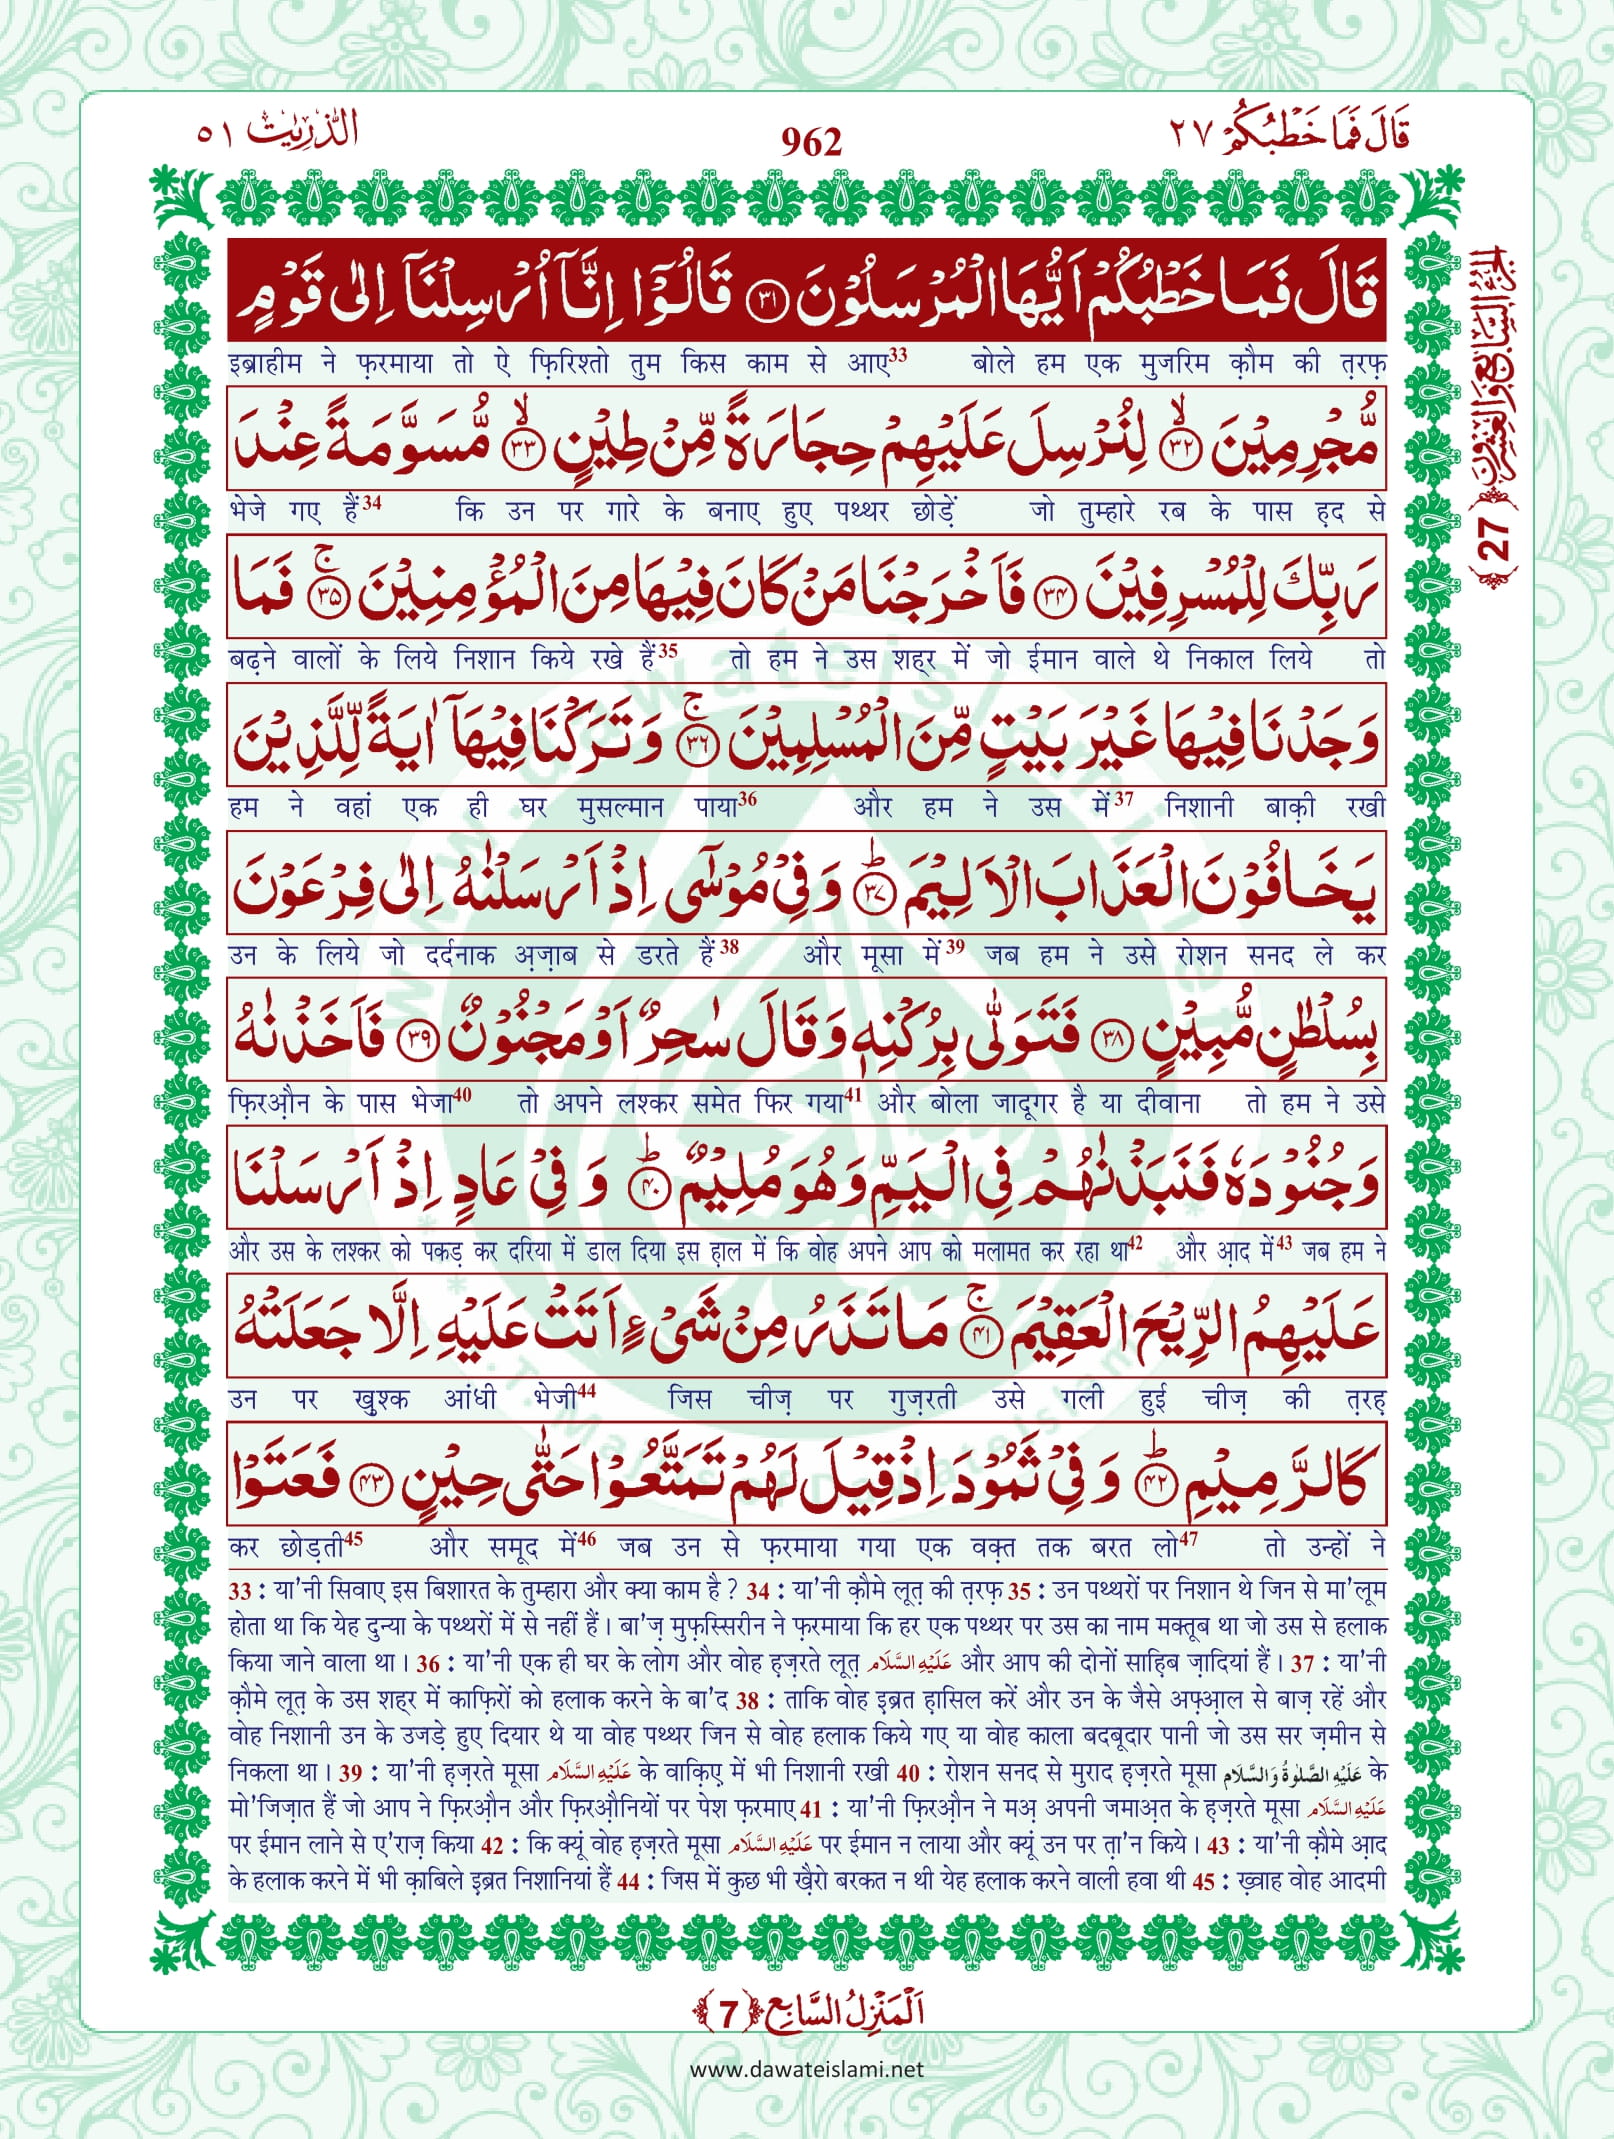 قَالَ فَمَا خَطْبُكُمْ ٢٧
962
الذّٰرِيٰت ٥١
قَالَ فَمَا خَطْبُكُمْ اَيُّهَا الْمُرْسَلُوْنَ ﴿٣١﴾ قَالُوْۤا اِنَّاۤ اُرْسِلْنَاۤ اِلٰى قَوْمٍ
इब्राहीम ने फ़रमाया तो ऐ फ़िरिश्तो तुम किस काम से आए33 बोले हम एक मुजरिम क़ौम की त़रफ़
مُّجْرِمِيْنَ ۙ﴿٣٢﴾ لِنُرْسِلَ عَلَيْهِمْ حِجَارَةً مِّنْ طِيْنٍ ۙ﴿٣٣﴾ مُّسَوَّمَةً عِنْدَ
भेजे गए हैं34 कि उन पर गारे के बनाए हुए पथ्थर छोड़ें जो तुम्हारे रब के पास ह़द से
رَبِّكَ لِلْمُسْرِفِيْنَ ﴿٣٤﴾ فَاَخْرَجْنَا مَنْ كَانَ فِيْهَا مِنَ الْمُؤْمِنِيْنَ ۚ﴿٣٥﴾ فَمَا
बढ़ने वालों के लिये निशान किये रखे हैं35 तो हम ने उस शह्र में जो ईमान वाले थे निकाल लिये तो
وَجَدْنَا فِيْهَا غَيْرَ بَيْتٍ مِّنَ الْمُسْلِمِيْنَ ۚ﴿٣٦﴾ وَ تَرَكْنَا فِيْهَاۤ اٰيَةً لِّلَّذِيْنَ
हम ने वहां एक ही घर मुसल्मान पाया36 और हम ने उस में37 निशानी बाक़ी रखी
يَخَافُوْنَ الْعَذَابَ الْاَلِيْمَ ؕ﴿٣٧﴾ وَ فِيْ مُوْسٰۤى اِذْ اَرْسَلْنٰهُ اِلٰى فِرْعَوْنَ
उन के लिये जो दर्दनाक अ़ज़ाब से डरते हैं38 और मूसा में39 जब हम ने उसे रोशन सनद ले कर
بِسُلْطٰنٍ مُّبِيْنٍ ﴿٣٨﴾ فَتَوَلّٰى بِرُكْنِهٖ وَ قَالَ سٰحِرٌ اَوْ مَجْنُوْنٌ ﴿٣٩﴾ فَاَخَذْنٰهُ
फ़िरऔ़न के पास भेजा40 तो अपने लश्कर समेत फिर गया41 और बोला जादूगर है या दीवाना तो हम ने उसे
وَ جُنُوْدَهٗ فَنَبَذْنٰهُمْ فِي الْيَمِّ وَ هُوَ مُلِيْمٌ ؕ﴿٤٠﴾ وَ فِيْ عَادٍ اِذْ اَرْسَلْنَا
और उस के लश्कर को पकड़ कर दरिया में डाल दिया इस ह़ाल में कि वोह अपने आप को मलामत कर रहा था42 और आ़द में43 जब हम ने
عَلَيْهِمُ الرِّيْحَ الْعَقِيْمَ ۚ﴿٤١﴾ مَا تَذَرُ مِنْ شَيْءٍ اَتَتْ عَلَيْهِ اِلَّا جَعَلَتْهُ
उन पर ख़ुश्क आंधी भेजी44 जिस चीज़ पर गुज़रती उसे गली हुई चीज़ की त़रह़
كَالرَّمِيْمِ ؕ﴿٤٢﴾ وَ فِيْ ثَمُوْدَ اِذْ قِيْلَ لَهُمْ تَمَتَّعُوْا حَتّٰى حِيْنٍ ﴿٤٣﴾ فَعَتَوْا
कर छोड़ती45 और समूद में46 जब उन से फ़रमाया गया एक वक़्त तक बरत लो47 तो उन्हों ने
33 : या'नी सिवाए इस बिशारत के तुम्हारा और क्या काम है ? 34 : या'नी क़ौमे लूत़ की त़रफ़ 35 : उन पथ्थरों पर निशान थे जिन से मा'लूम
होता था कि येह दुन्या के पथ्थरों में से नहीं हैं। बा'ज़ मुफ़स्सिरीन ने फ़रमाया कि हर एक पथ्थर पर उस का नाम मक्तूब था जो उस से हलाक
किया जाने वाला था। 36 : या'नी एक ही घर के लोग और वोह ह़ज़रते लूत़ عَلَيْهِ السَّلَام और आप की दोनों साहि़ब ज़ादियां हैं। 37 : या'नी
क़ौमे लूत़ के उस शह्र में काफ़िरों को हलाक करने के बा'द 38 : ताकि वोह इ़ब्रत ह़ासिल करें और उन के जैसे अफ़्आ़ल से बाज़ रहें और
वोह निशानी उन के उजड़े हुए दियार थे या वोह पथ्थर जिन से वोह हलाक किये गए या वोह काला बदबूदार पानी जो उस सर ज़मीन से
निकला था। 39 : या'नी ह़ज़रते मूसा عَلَيْهِ السَّلَام के वाक़िए़ में भी निशानी रखी 40 : रोशन सनद से मुराद ह़ज़रते मूसा عَلَيْهِ الصَّلٰوةُ وَالسَّلَام के
मो'जिज़ात हैं जो आप ने फ़िरऔ़न और फ़िरऔ़नियों पर पेश फरमाए 41 : या'नी फ़िरऔ़न ने मअ़ अपनी जमाअ़त के ह़ज़रते मूसा عَلَيْهِ السَّلَام
पर ईमान लाने से ए'राज़ किया 42 : कि क्यूं वोह ह़ज़रते मूसा عَلَيْهِ السَّلَام पर ईमान न लाया और क्यूं उन पर त़ा'न किये। 43 : या'नी क़ौमे आ़द
के हलाक करने में भी क़ाबिले इ़ब्रत निशानियां हैं 44 : जिस में कुछ भी ख़ैरो बरकत न थी येह हलाक करने वाली हवा थी 45 : ख़्वाह वोह आदमी
الجُزْءُ السَّابِعُ وَالْعِشْرُوْنَ ﴿27﴾
اَلْمَنْزِلُ السَّابِع ﴿7﴾
www.dawateislami.net